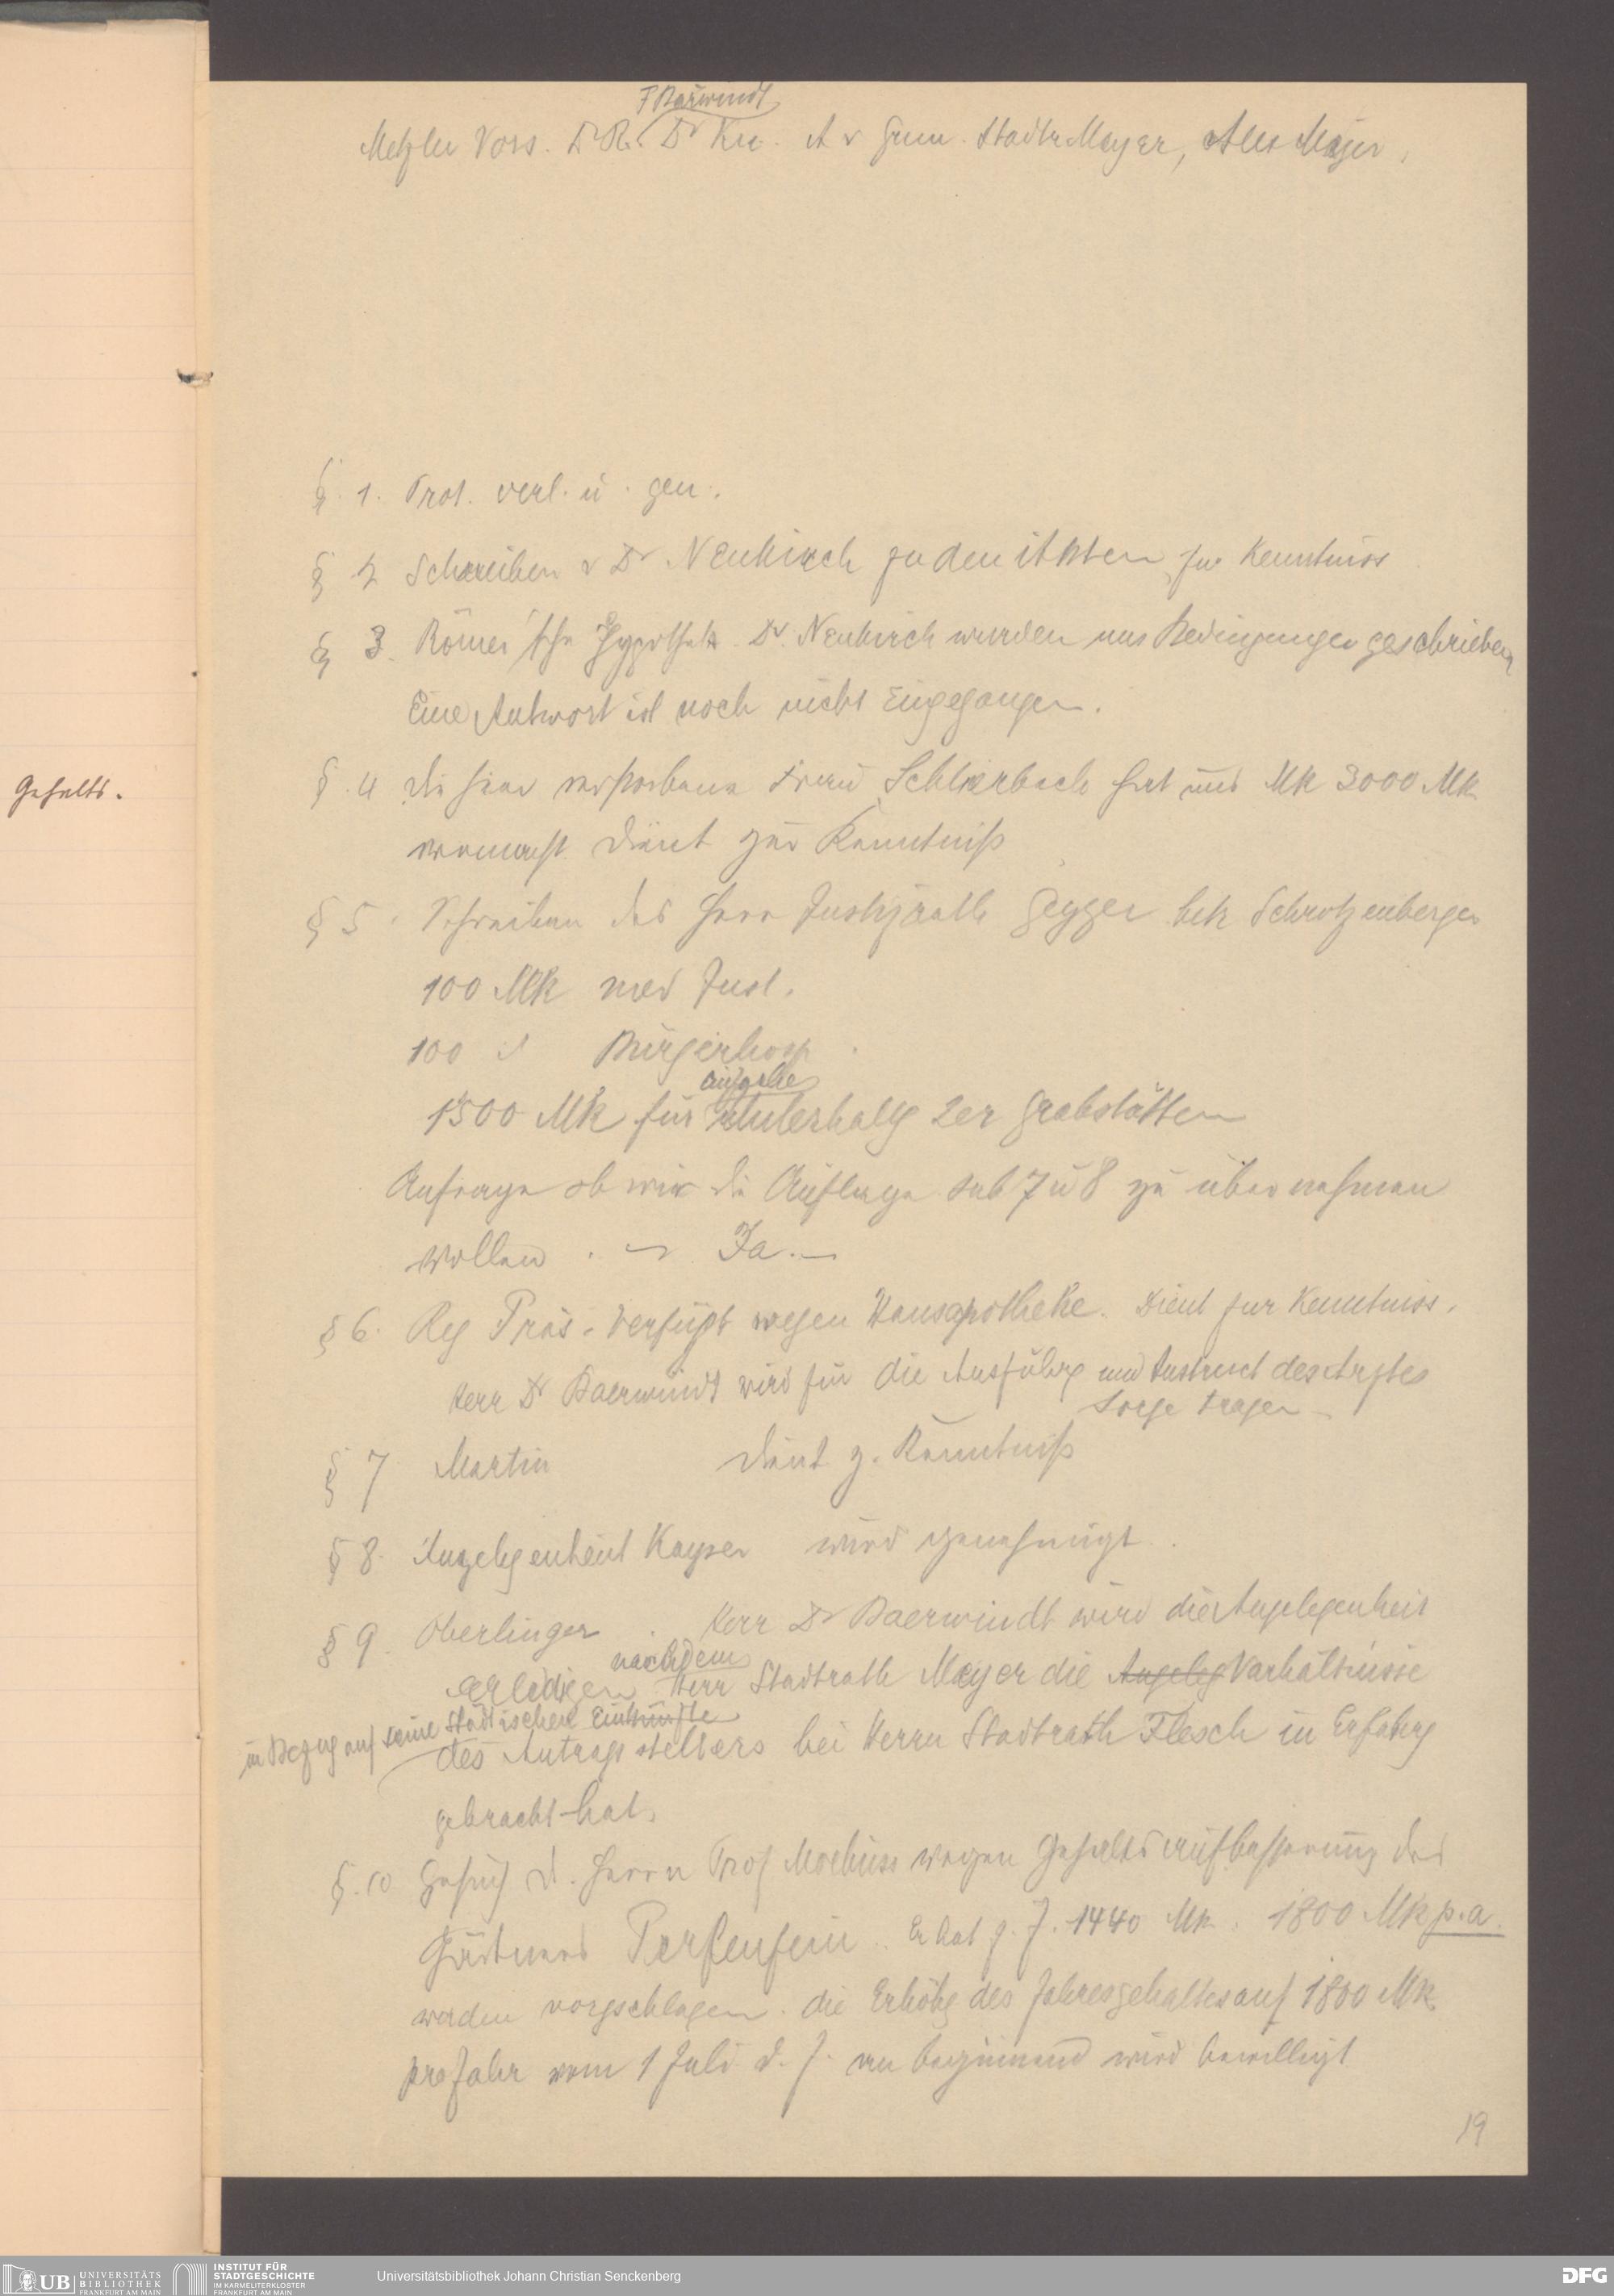 F Baerwindt
Metzler Vors. Dr R. Dr Kn. A v Grun. Stadtr Mayer, Alex Majer,
§. 1. Prot. verl. u. gen.
§ 2 Schreiben v Dr Neukirch zu den Akten zur Kenntniss
§ 3. Römer'sche Hypothek Dr. Neukirch wurden uns Bedingungen geschrieben
Eine Antwort ist noch nicht eingegangen.
§. 4 Die hier verstorbene Frau Schlierbach hat uns Mk 3000 Mk
Gehalts.
vermacht dient zur Kenntniß
§ 5. Schreiben des Herr Justizrath Geyger betr Schrotzenberger
100 Mk med Inst.
100 " Bürgerhosp.
aufgabe
1500 Mk für Unterhaltg 2er Grabstätten
Anfrage ob wir die Auflage sub 7 u 8 zu übernehmen
wollen. — Ja. —
§ 6. Reg Präs. Verfügt wegen Hausapotheke. Dient zur Kenntniss.
Herr Dr Baerwindt wird für die Ausführg und Instruct des Arztes
Sorge tragen
§ 7 Martin dient z. Kenntniß
§ 8. Angelegenheit Kayser wird genehmigt.
§ 9. Oberlinger. Herr Dr Baerwindt wird die Angelegenheit
nachdem
erledigen Herr Stadtrath Mayer die Angeleg Verhältnisse
in Bezug auf seine Städtischen Einkünfte
des Antragsstellers bei Herrn Stadtrath Flesch in Erfahrg
gebracht hat.
§. 10 Gesuch d. Herrn Prof Moebius wegen Gehaltsaufbesserung des
Gärtners Perfenfein. Er hat z. Z. 1440 Mk. 1800 Mk p.a.
werden vorgeschlagen. die Erhöhg des Jahresgehaltes auf 1800 Mk
pro Jahr vom 1 Juli d. J. an beginnend wird bewilligt
19
UB UNIVERSITÄTS
BIBLIOTHEK
FRANKFURT AM MAIN
INSTITUT FÜR
STADTGESCHICHTE
IM KARMELITERKLOSTER
FRANKFURT AM MAIN
Universitätsbibliothek Johann Christian Senckenberg
DFG